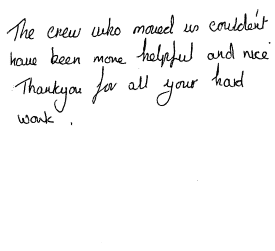 The crew who moved us couldn't
have been more helpful and nice
Thankyou for all your hard
work .